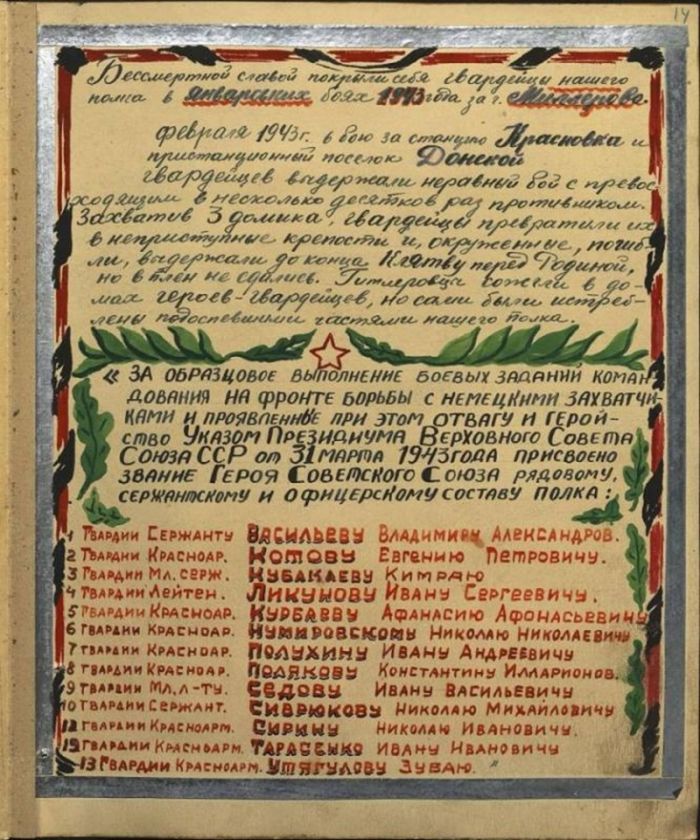 14
Бессмертной славой покрыли себя гвардейцы нашего
полка в январских боях 1943 года за г. Миллерово.
февраля 1943 г. в бою за станцию Красновка и
пристанционный поселок Донской
гвардейцев выдержали неравный бой с превос-
ходящим в несколько десятков раз противником.
Захватив 3 домика, гвардейцы превратили их
в неприступные крепости и, окруженные, погиб-
ли, выдержали до конца Клятву перед Родиной,
но в плен не сдались. Гитлеровцы сожгли в до-
мах героев-гвардейцев, но сами были истреб-
лены подоспевшими частями нашего полка.
« ЗА ОБРАЗЦОВОЕ ВЫПОЛНЕНИЕ БОЕВЫХ ЗАДАНИЙ КОМАН-
ДОВАНИЯ НА ФРОНТЕ БОРЬБЫ С НЕМЕЦКИМИ ЗАХВАТЧИ-
КАМИ И ПРОЯВЛЕННЫЕ ПРИ ЭТОМ ОТВАГУ И ГЕРОЙ-
СТВО УКАЗОМ ПРЕЗИДИУМА ВЕРХОВНОГО СОВЕТА
СОЮЗА ССР от 31 МАРТА 1943 ГОДА ПРИСВОЕНО
ЗВАНИЕ ГЕРОЯ СОВЕТСКОГО СОЮЗА РЯДОВОМУ,
СЕРЖАНТСКОМУ И ОФИЦЕРСКОМУ СОСТАВУ ПОЛКА :
1 ГВАРДИИ СЕРЖАНТУ ВАСИЛЬЕВУ ВЛАДИМИРУ АЛЕКСАНДРОВ.
2 ГВАРДИИ КРАСНОАР. КОТОВУ ЕВГЕНИЮ ПЕТРОВИЧУ.
3 ГВАРДИИ МЛ. СЕРЖ. КУБАКАЕВУ КИМРАЮ
4 ГВАРДИИ ЛЕЙТЕН. ЛИКУНОВУ ИВАНУ СЕРГЕЕВИЧУ.
5 ГВАРДИИ КРАСНОАР. КУРБАЕВУ АФАНАСИЮ АФОНАСЬЕВИЧУ
6 ГВАРДИИ КРАСНОАР. НЕМИРОВСКОМУ НИКОЛАЮ НИКОЛАЕВИЧУ
7 ГВАРДИИ КРАСНОАР. ПОЛУХИНУ ИВАНУ АНДРЕЕВИЧУ
8 ГВАРДИИ КРАСНОАР. ПОЛЯКОВУ КОНСТАНТИНУ ИЛЛАРИОНОВ.
9 ГВАРДИИ МЛ. Л-ТУ. СЕДОВУ ИВАНУ ВАСИЛЬЕВИЧУ
10 ГВАРДИИ СЕРЖАНТ. СЕВРЮКОВУ НИКОЛАЮ МИХАЙЛОВИЧУ
ГВАРДИИ КРАСНОАРМ. СИРИНУ НИКОЛАЮ ИВАНОВИЧУ.
12 ГВАРДИИ КРАСНОАРМ. ТАРАСЕНКО ИВАНУ ИВАНОВИЧУ
13 ГВАРДИИ КРАСНОАРМ. УТЯГУЛОВУ ЗУБАЮ. "